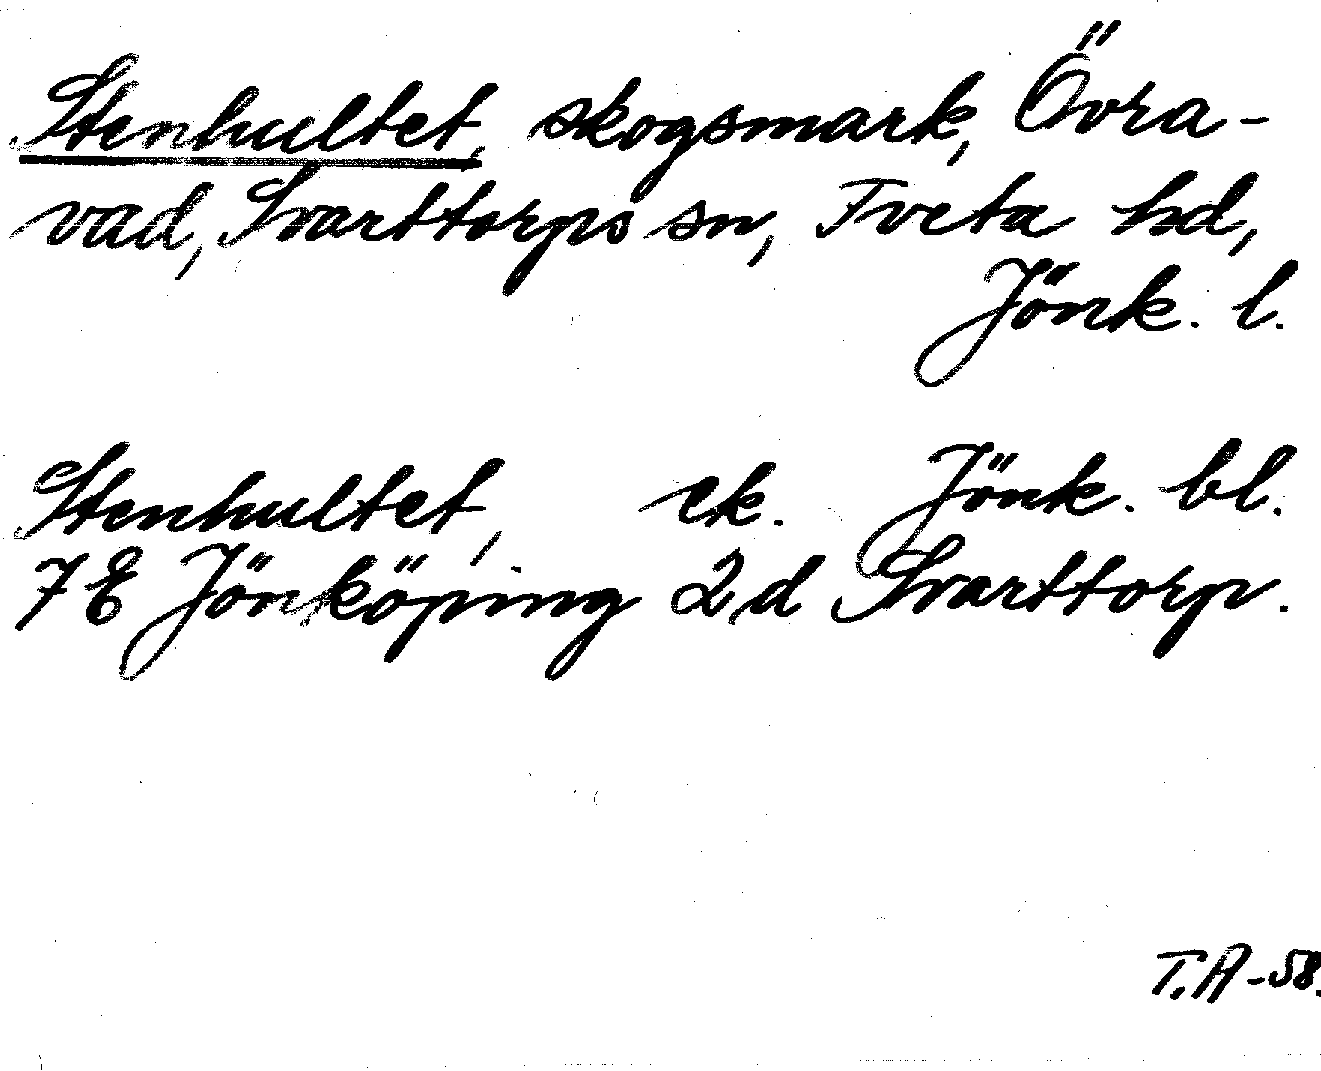 Stenhultet, skogsmark, Övra-
vad, Svarttorps sn, Tveta hd,
Jönk. l.
Stenhultet, ek. Jönk. bl.
7E Jönköping 2d Svarttorp.
T.A-58.